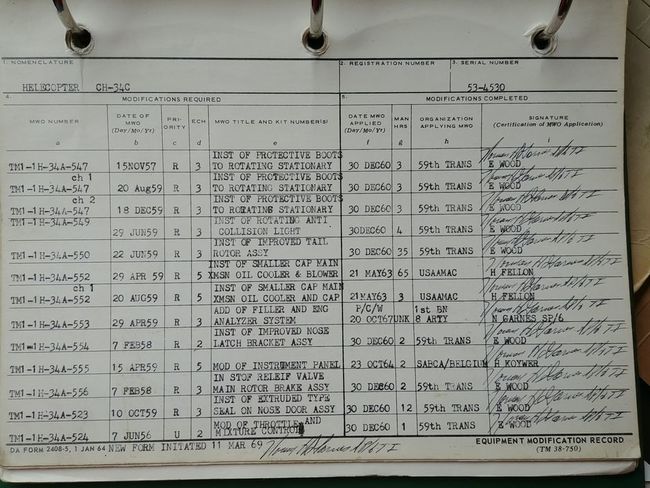 1. NOMENCLATURE 2. REGISTRATION NUMBER 3. SERIAL NUMBER
HELICOPTER CH-34C 53-4530
4. MODIFICATIONS REQUIRED 5. MODIFICATIONS COMPLETED
MWO NUMBER DATE OF MWO (Day/Mo/Yr) PRI-ORITY ECH MWO TITLE AND KIT NUMBER(S) DATE MWO APPLIED (Day/Mo/Yr) MAN HRS ORGANIZATION APPLYING MWO SIGNATURE (Certification of MWO Application)
a b c d e f g h i
TM1-1H-34A-547 15NOV57 R 3 INST OF PROTECTIVE BOOTS TO ROTATING STATIONARY 30 DEC60 3 59th TRANS E WOOD
TM1-1H-34A-547 ch 1 20 Aug59 R 3 INST OF PROTECTIVE BOOTS TO ROTATING STATIONARY 30 DEC60 3 59th TRANS E WOOD
TM1-1H-34A-547 ch 2 18 DEC59 R 3 INST OF PROTECTIVE BOOTS TO ROTATING STATIONARY 30 DEC60 3 59th TRANS E WOOD
TM1-1H-34A-549 29 JUN59 R 3 INST OF ROTATING ANTI COLLISION LIGHT 30DEC60 4 59th TRANS E WOOD
TM1-1H-34A-550 22 JUN59 R 3 INST OF IMPROVED TAIL ROTOR ASSY 30 DEC60 35 59th TRANS E WOOD
TM1-1H-34A-552 29 APR 59 R 5 INST OF SMALLER CAP MAIN XMSN OIL COOLER & BLOWER 21 MAY63 65 USAAMAC H FRELON
TM1-1H-34A-552 ch 1 20 AUG59 R 5 INST OF SMALLER CAP MAIN XMSN OIL COOLER AND CAP 21MAY63 3 USAAMAC H FRELON
TM1-1H-34A-553 29 APR59 R 3 ADD OF FILLER AND ENG ANALYZER SYSTEM F/C/W 20 OCT67 1st SN 8 ARTY N GARNES SP/6
TM1-1H-34A-554 7 FEB58 R 2 INST OF IMPROVED NOSE LATCH BRACKET ASSY 30 DEC60 2 59th TRANS E WOOD
TM1-1H-34A-555 15 APR59 R 5 MOD OF INSTRUMENT PANEL 23 OCT64 2 SABCA/BELGIUM H KOTWER
TM1-1H-34A-556 7 FEB58 R 3 IN STOP RELEIF VALVE MAIN ROTOR BRAKE ASSY 30 DEC60 2 59th TRANS E WOOD
TM1-1H-34A-523 10 OCT59 R 3 INST OF EXTRUDED TYPE SEAL ON NOSE DOOR ASSY 30 DEC60 12 59th TRANS E WOOD
TM1-1H-34A-524 7 JUN56 U 2 MOD OF THROTTLE AND MIXTURE CONTROL 30 DEC60 1 59th TRANS E WOOD
DA FORM 2408-5, 1 JAN 64 NEW FORM INITIATED 11 MAR 69 EQUIPMENT MODIFICATION RECORD
(TM 38-750)